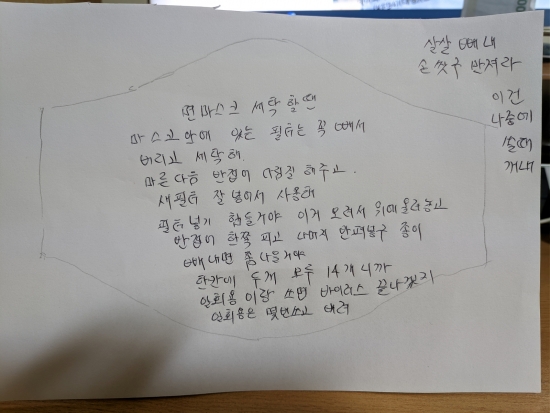 살살 빼내
손 씻구 만져라
이건
나중에
쓸때
꺼내
면마스크 세탁 할땐
마스크 안에 있는 필터는 꼭 빼서
버리고 세탁해
마른다음 반접어 다림질 해주고.
새필터 잘 넣어서 사용해
필터 넣기 힘들거야 이거 오려서 위에 올려놓고
반접어 한쪽 피고 나머지 안펴넣구 종이
빼내면 좀 나을거야
한칸에 두개 모두 14개 니까
일회용이랑 쓰면 바이러스 끝나겠지
일회용은 몇번쓰고 버려